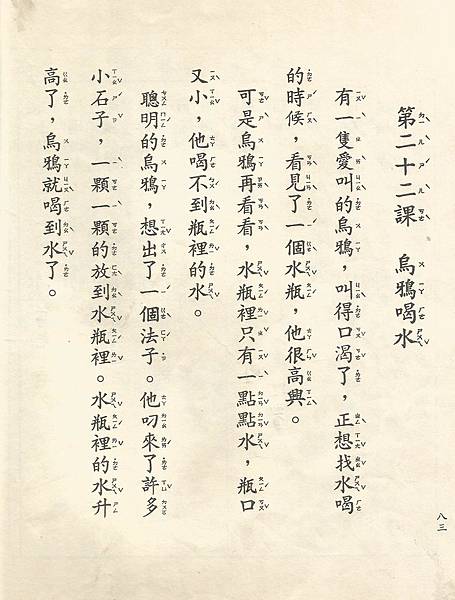 第二十二課　烏鴉喝水
有一隻愛叫的烏鴉，叫得口渴了，正想找水喝
的時候，看見了一個水瓶，他很高興。
可是烏鴉再看看，水瓶裡只有一點點水，瓶口
又小，他喝不到瓶裡的水。
聰明的烏鴉，想出了一個法子。他叼來了許多
小石子，一顆一顆的放到水瓶裡。水瓶裡的水升
高了，烏鴉就喝到水了。
八三